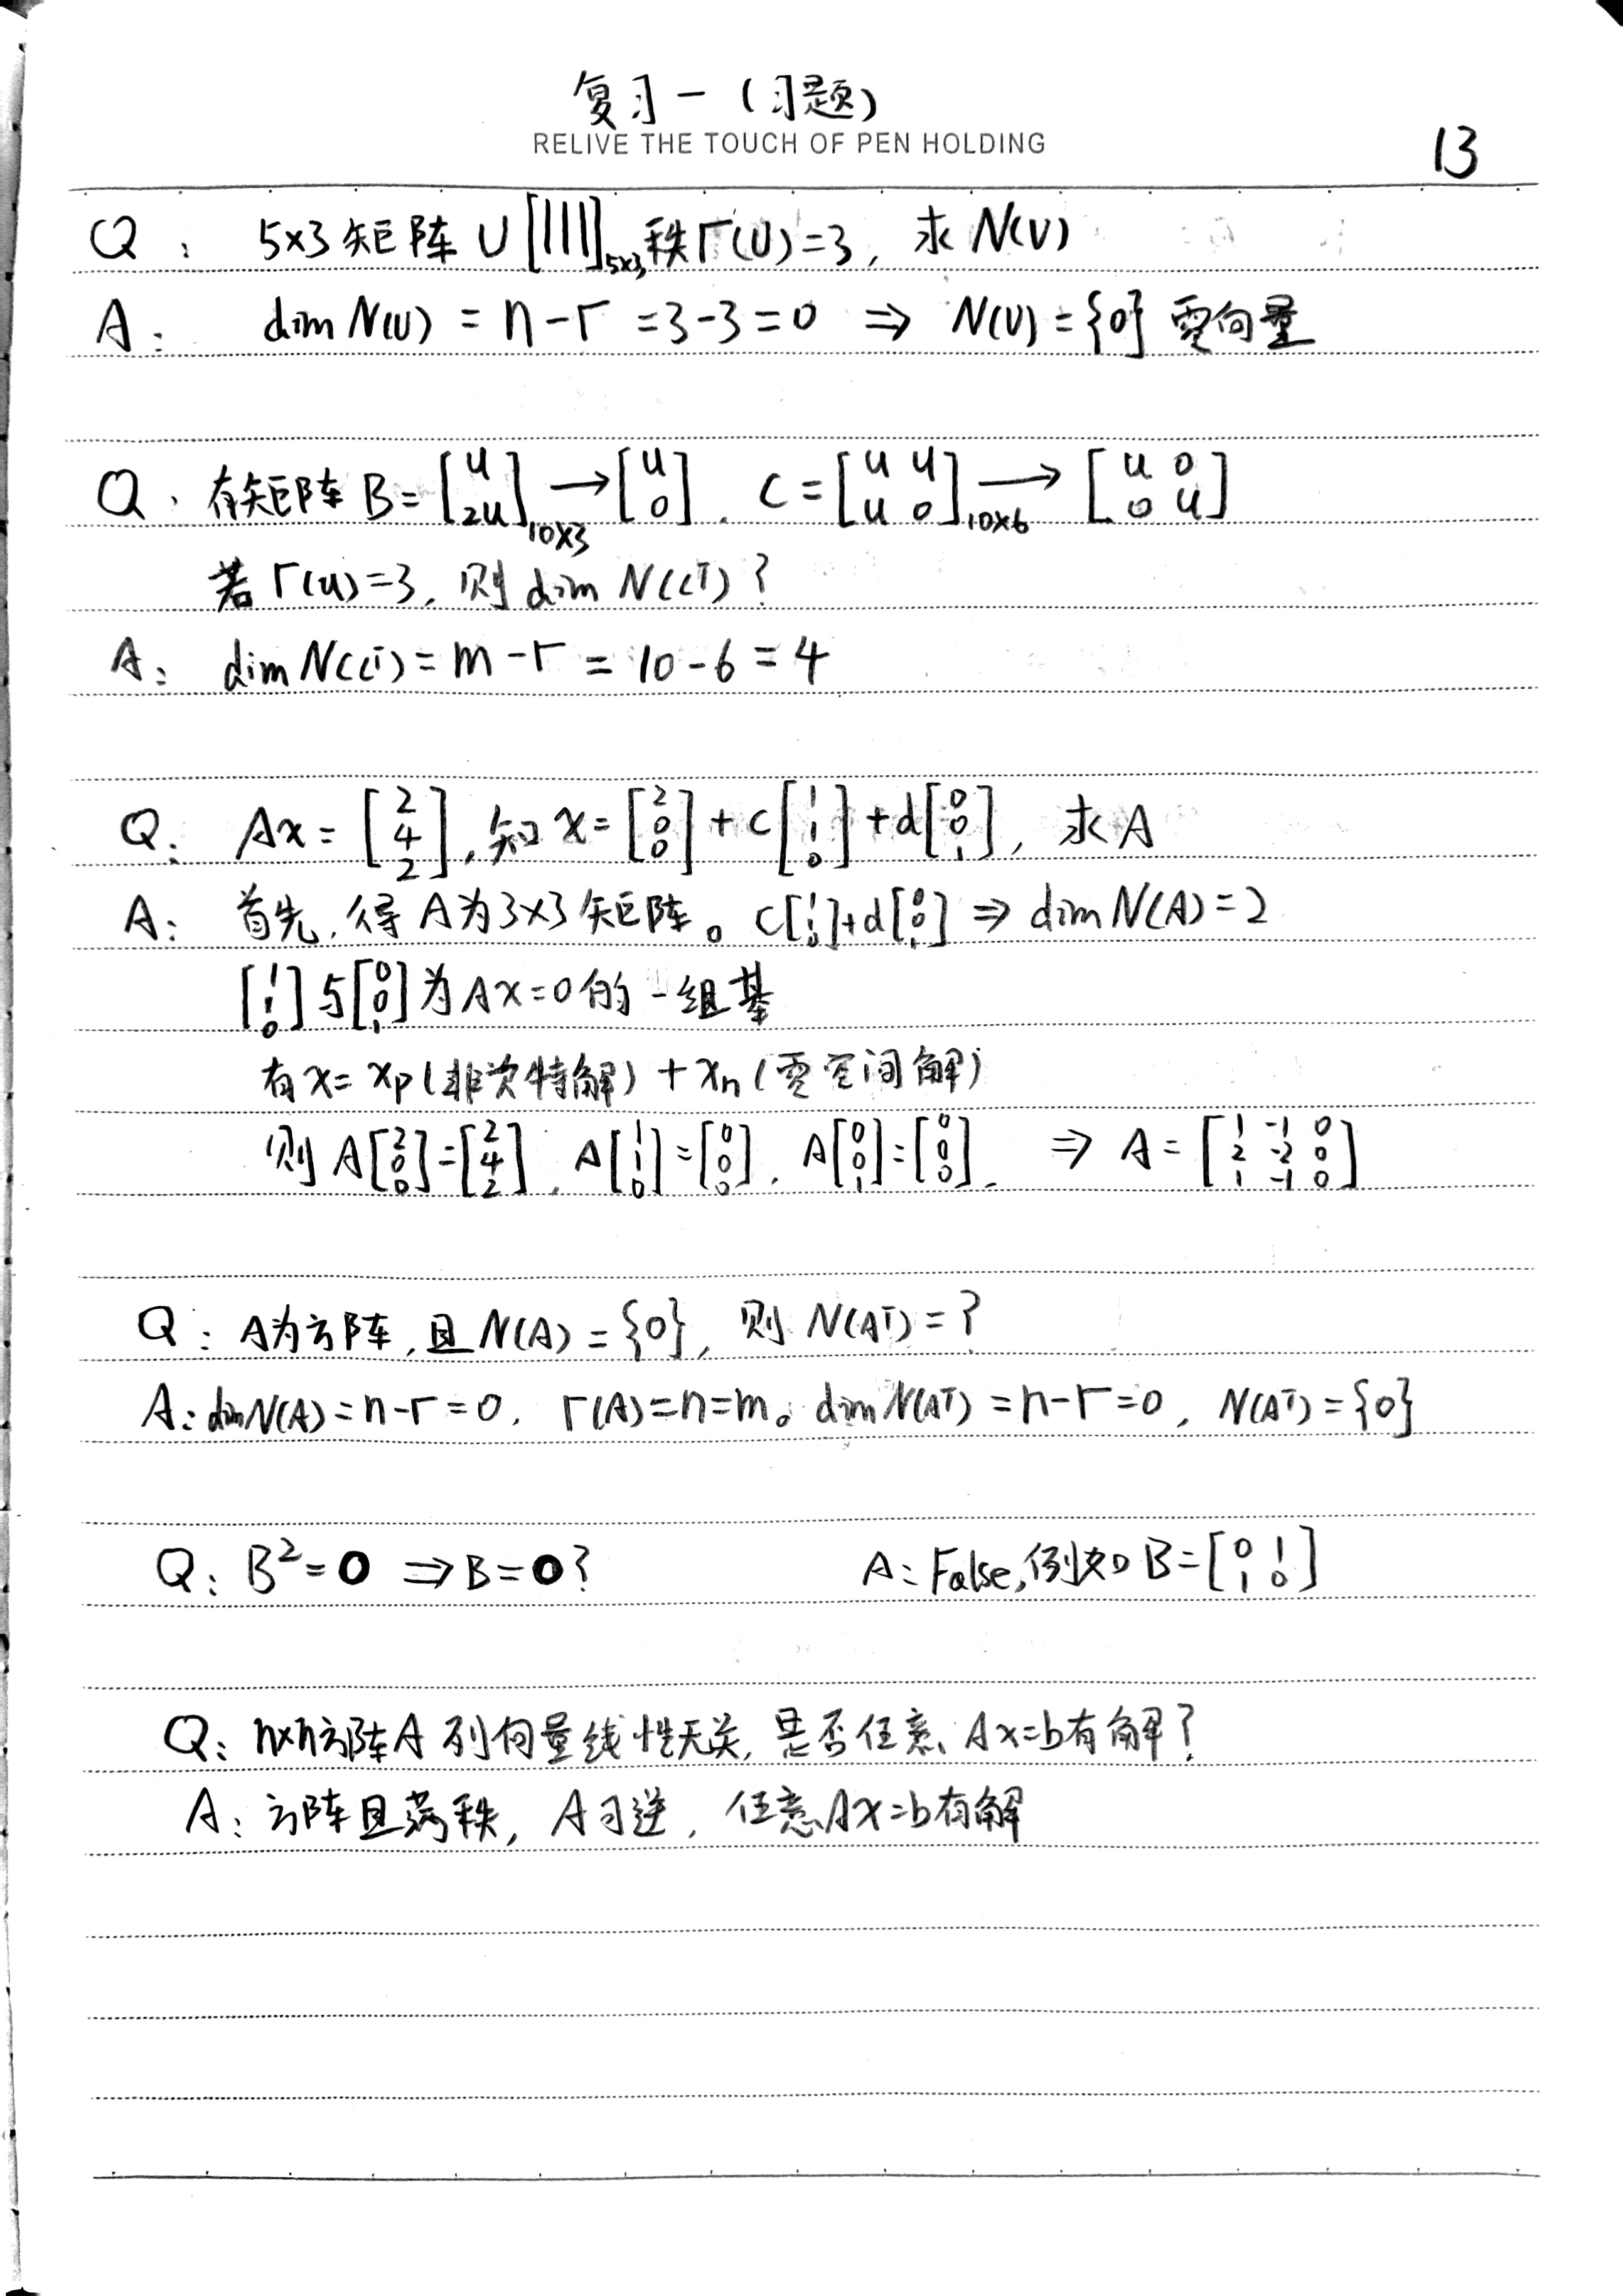 复习一（习题）
RELIVE THE TOUCH OF PEN HOLDING
13
Q: 5×3矩阵 U [|||]5×3, 秩r(U)=3, 求N(U)
A: dim N(U) = n-r = 3-3=0 ⇒ N(U)={0} 零向量
Q: 有矩阵 B=[U; 2U]10×3 → [U; 0], C=[U U; U 0]10×6 → [U 0; 0 U]
若 r(U)=3, 则 dim N(Cᵀ)?
A: dim N(Cᵀ) = m-r = 10-6 = 4
Q: Ax=[2; 4; 2], 知 x=[2; 0; 0]+c[1; 1; 0]+d[0; 0; 1], 求A
A: 首先, 得A为3×3矩阵。c[1; 1; 0]+d[0; 0; 1] ⇒ dim N(A)=2
[1; 1; 0]与[0; 0; 1]为Ax=0的一组基
有x=xp(非次特解)+xn(零空间解)
则 A[2; 0; 0]=[2; 4; 2], A[1; 1; 0]=[0; 0; 0], A[0; 0; 1]=[0; 0; 0]. ⇒ A=[1 -1 0; 2 -2 0; 1 -1 0]
Q: A为方阵, 且N(A)={0}, 则N(Aᵀ)=?
A: dimN(A)=n-r=0, r(A)=n=m。dimN(Aᵀ)=n-r=0, N(Aᵀ)={0}
Q: B²=0 ⇒B=0? A: False, 例如 B=[0 1; 1 0]
Q: n×n方阵A 列向量线性无关, 是否任意 Ax=b有解?
A: 方阵且满秩, A可逆, 任意Ax=b有解